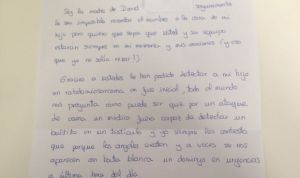 Soy la madre de David seguramente
le sea imposible recordar el nombre o la cara de mi
hijo pero quiero que sepa que usted y su equipo
estarán siempre en mi memoria y mis oraciones (y eso
que yo no solía rezar!!)
Gracias a ustedes le han podido detectar a mi hijo
un rabdomiosarcoma en fase inicial, todo el mundo
me pregunta como puede ser que por un ataque
de asma un médico fuera capaz de detectar un
bultito en un testículo y yo siempre les contesto
que porque los angeles existen y a veces se nos
aparecen con bata blanca un domingo en urgencias
a última hora del día